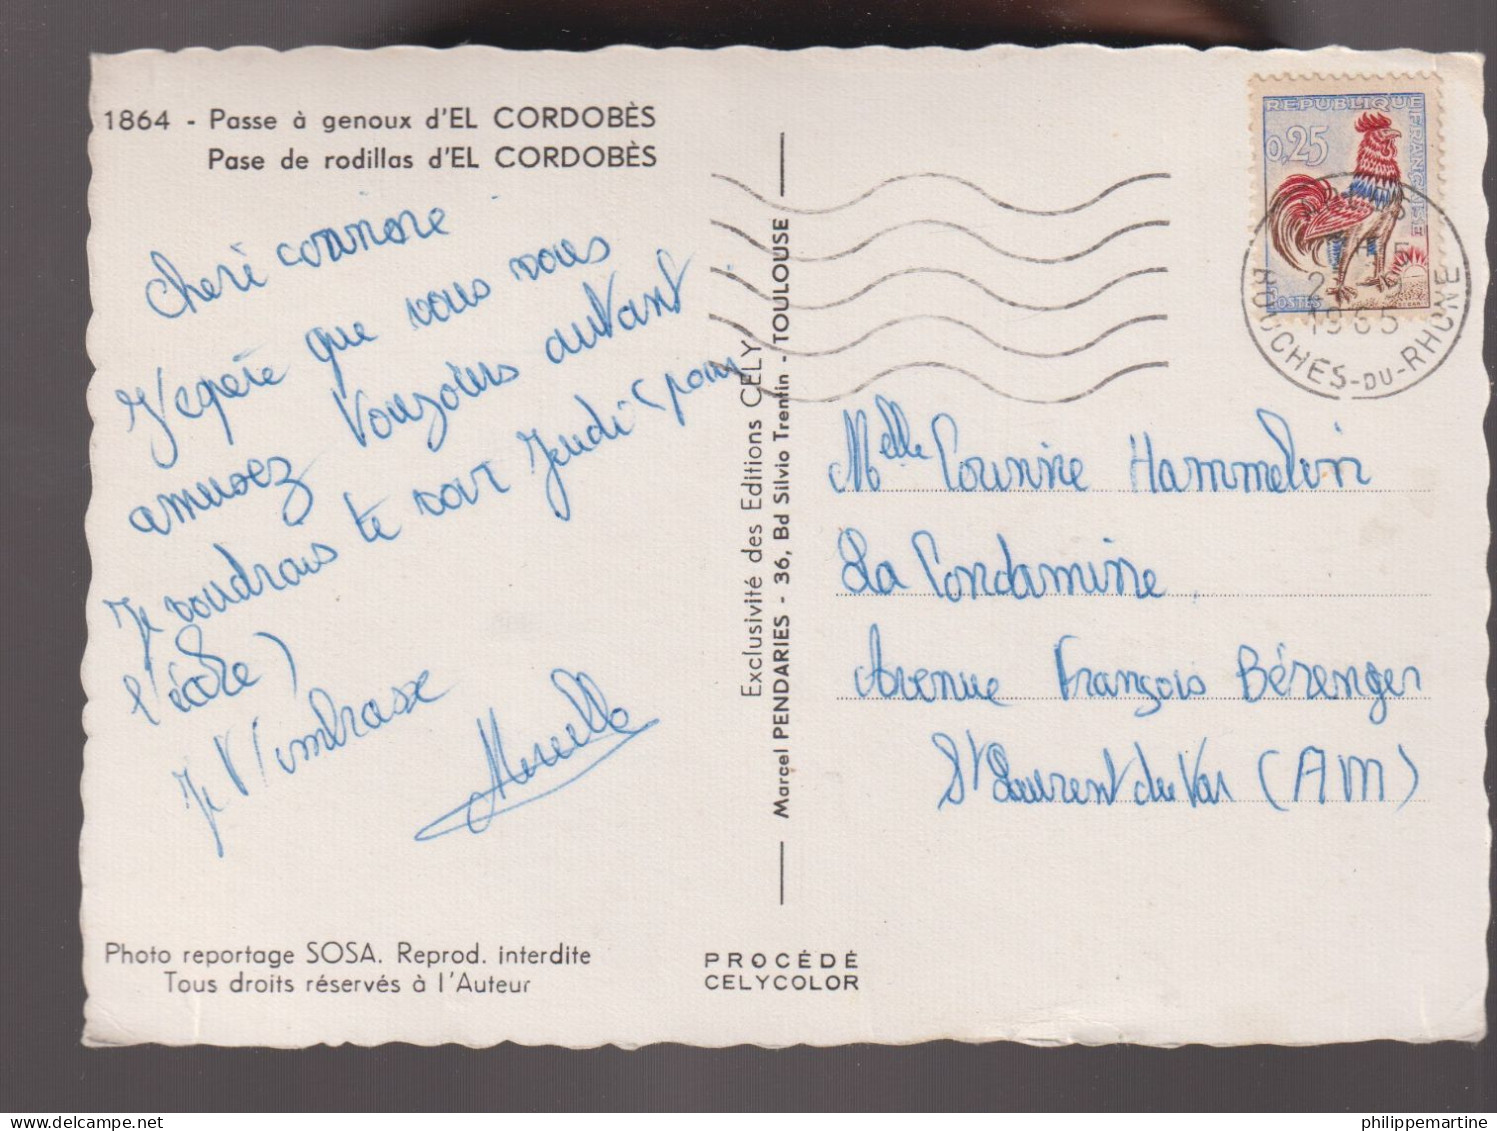 1864 - Passe à genoux d'EL CORDOBÈS
Pase de rodillas d'EL CORDOBÈS
Cheri corinne
J'espère que vous vous
amusez toujours autant
Je voudrais te voir Jeudi (pour
l'école)
Je t'embrasse
Mireille
Photo reportage SOSA. Reprod. interdite
Tous droits réservés à l'Auteur
Exclusivité des Editions CELY
Marcel PENDARIES - 36, Bd Silvio Trentin - TOULOUSE
PROCÉDÉ
CELYCOLOR
REPUBLIQUE FRANÇAISE
0,25
POSTES
1965
BOUCHES-DU-RHONE
Melle Corinne Hammelin
La Condamine
Avenue François Bérenger
St Laurent du Var (AM)
philippemartine